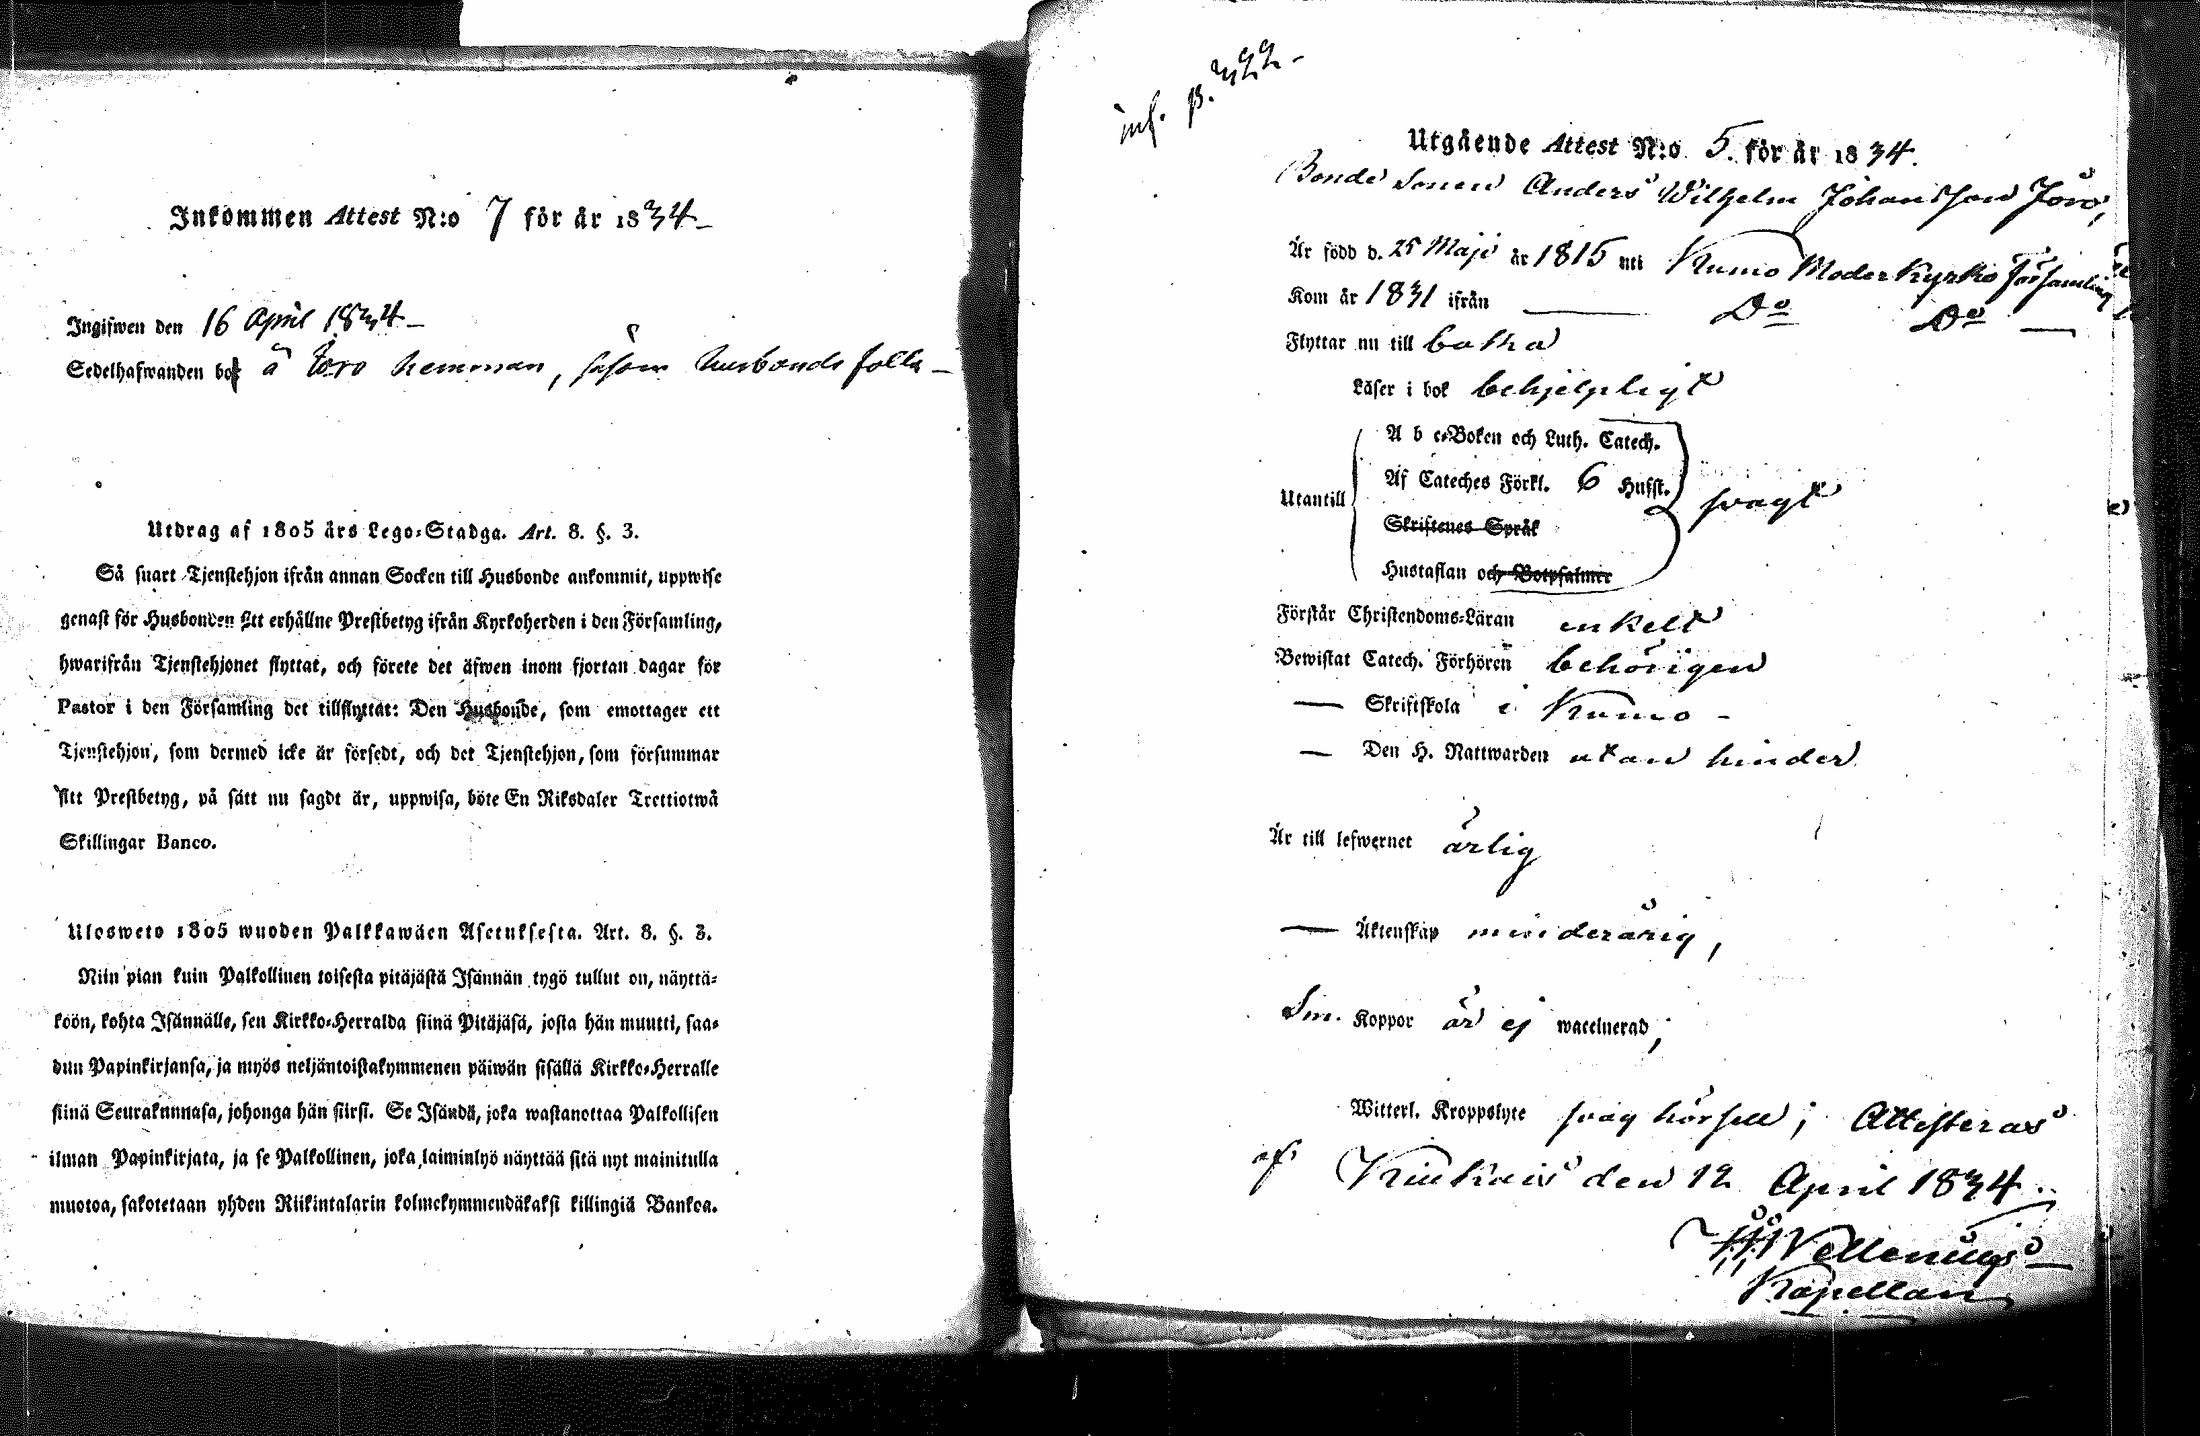 Inkommen Attest N:o 7 för år 1834
Ingifwen den 16 April 1834
Sedelhafwanden bor å Joro hemman, såsom husbonde folk
Utdrag af 1805 års Lego-Stadga. Art. 8. §. 3.
Så snart Tjenstehjon ifrån annan Socken till Husbonde ankommit, uppwise
genast för Husbonden sitt erhållne Prestbetyg ifrån Kyrkoherden i den Församling,
hwarifrån Tjenstehjonet flyttat, och förete det äfwen inom fjortan dagar för
Pastor i den Församling det tillflyttat: Den Husbonde, som emottager ett
Tjenstehjon, som dermed icke är försedt, och det Tjenstehjon, som försummar
sitt Prestbetyg, på sätt nu sagdt är, uppwisa, böte En Riksdaler Trettiotwå
Skillingar Banco.
Ulosweto 1805 wuoden Palkkawäen Asetuksesta. Art. 8. §. 3.
Niin pian kuin Palkollinen toisesta pitäjästä Isännän tygö tullut on, näyttä-
köön, kohta Isännälle, sen Kirkko-Herralda siinä Pitäjäsä, josta hän muutti, saa-
dun Papinkirjansa, ja myös neljäntoistakymmenen päiwän sisällä Kirkko-Herralle
siinä Seurakunnasa, johonga hän siirsi. Se Isändä, joka wastanottaa Palkollisen
ilman Papinkirjata, ja se Palkollinen, joka laiminlyö näyttää sitä nyt mainitulla
muotoa, sakotetaan yhden Riikintalarin kolmekymmendäkaksi killingiä Bankoa.
inf. p. 322
Utgående Attest N:o 5. för år 1834.
Bonde Sonen Anders Wilhelm Johansson Joro,
Är född d. 25 Maji år 1815 uti Kumo Moder Kyrko Församling
Kom år 1831 ifrån — Do Do —
Flyttar nu till baka
Läser i bok behjelpligt
A b c-Boken och Luth. Catech.
Af Cateches Förkl. 6 Hufst.
Utantill svagt
Skriftenes Språk
Hustaflan och Botpsalmer
Förstår Christendoms-Läran enkelt
Bewistat Catech. Förhören behörigen
— Skriftskola i Kumo -
— Den H. Nattwarden utan hinder
Är till lefwernet ärlig
— Äktenskap minderårig,
Sm. Koppor är ej waccinerad;
Witterl. Kroppslyte svag hörsel; Attesteras
af Kiukais den 12 April 1834.
Vellenius
Kapellan